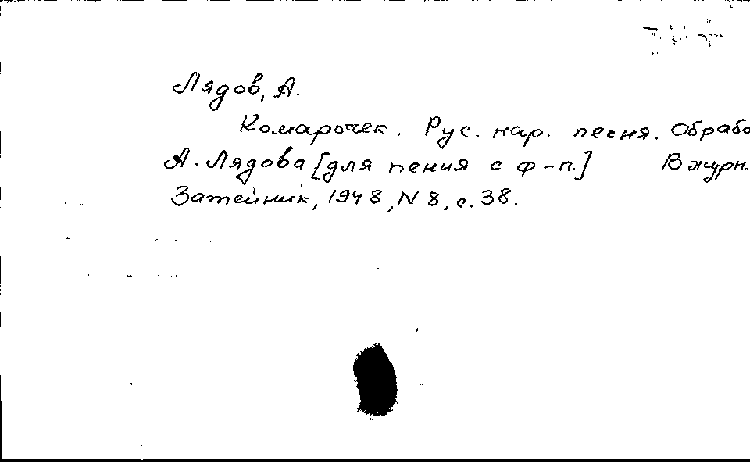 Лядов, А.
Комарочек. Рус. нар. песня. Обрабо
А. Лядова [для пения с ф-п.] В журн.
Затейник, 1948, N 8, с. 38.